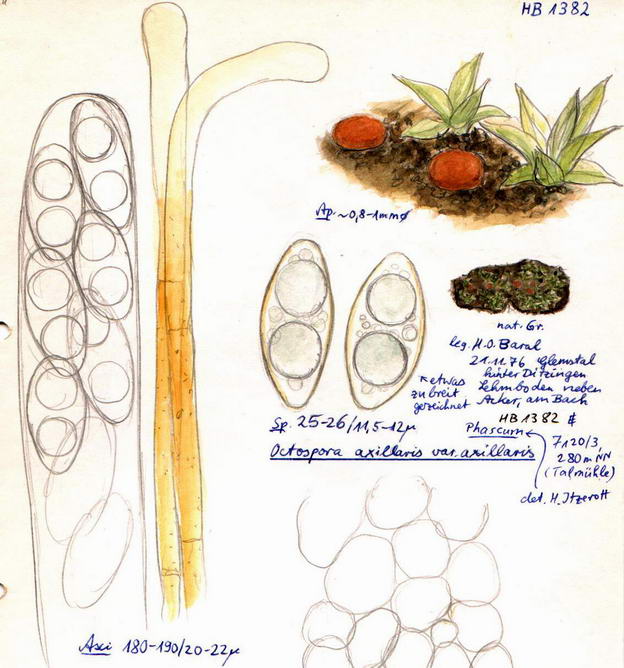 HB 1382
Ap. ~0,8-1mm ø
nat. Gr.
leg. H.O. Baral
21.11.76 Glemstal
hinter Ditzingen
Lehmboden neben
Acker, am Bach
HB 1382
↖etwas
zu breit
gezeichnet
Sp. 25-26/11,5-12µ
Phascum
Octospora axillaris var. axillaris
7120/3,
280m NN
(Talmühle)
det. H. Itzerott
Asci 180-190/20-22µ